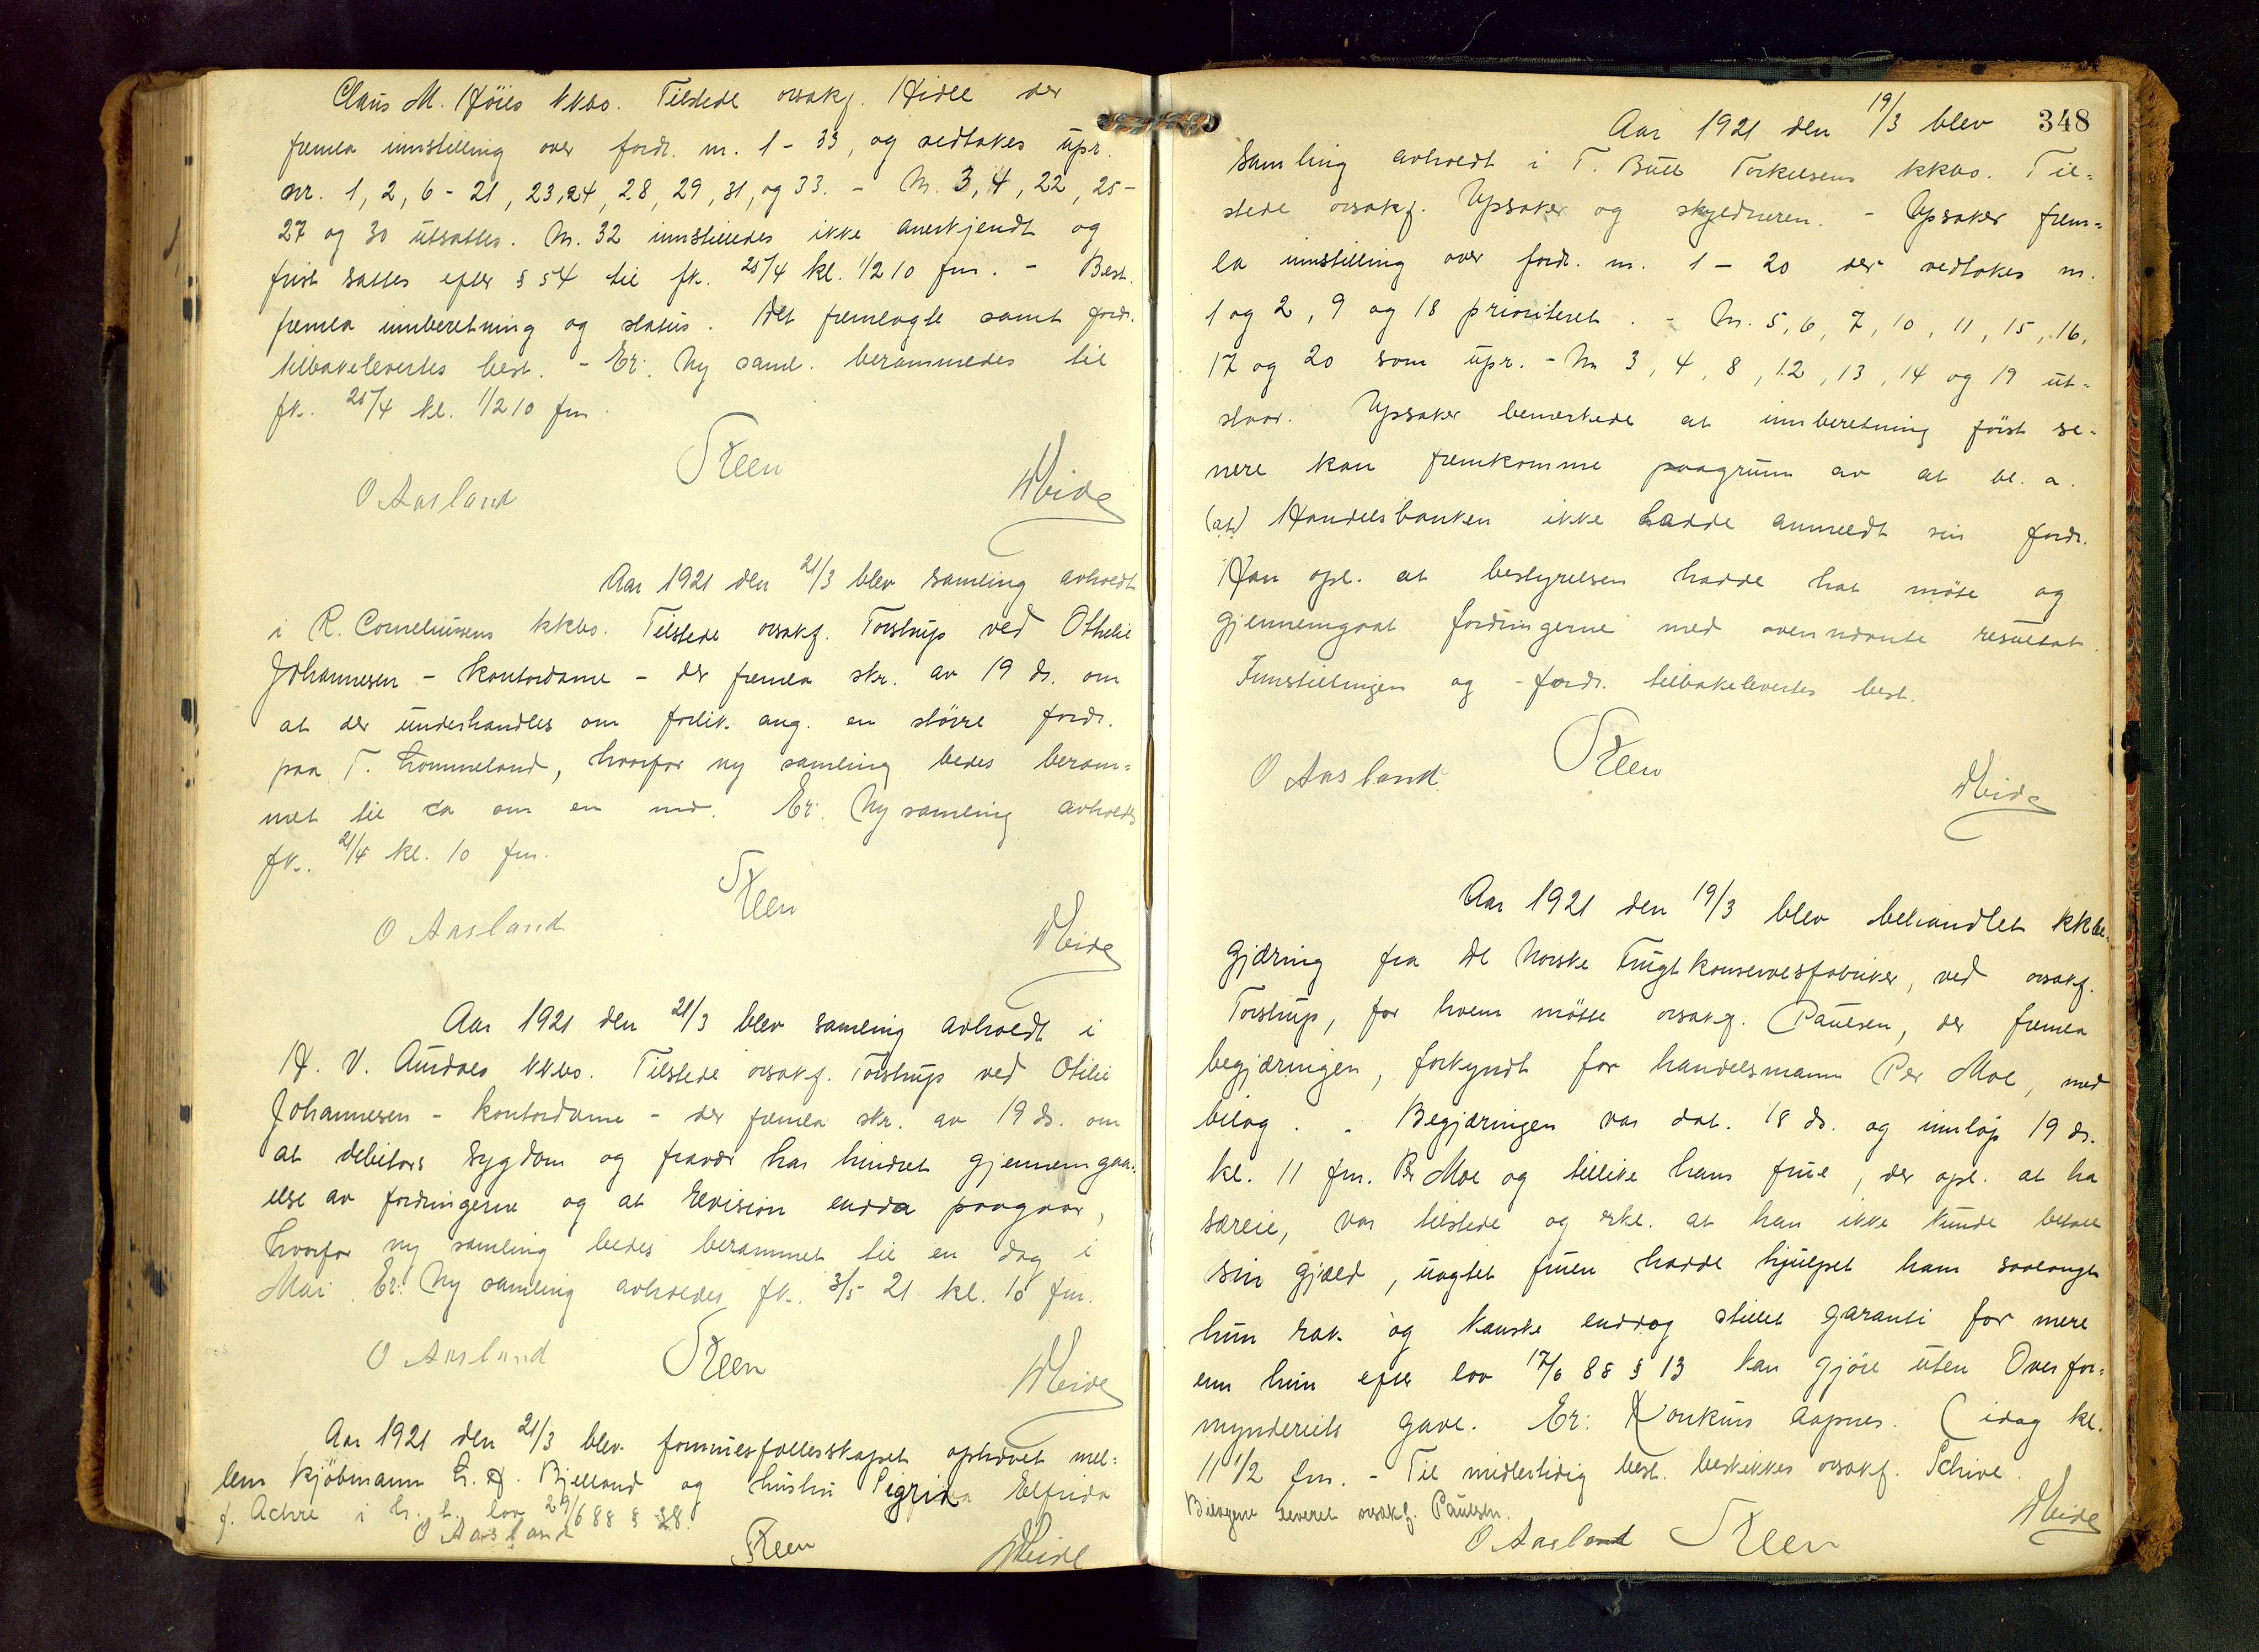 Claus M. Höies kkbo. Tilstede orsakf. Hidle der
fremla innstilling over fordr. nr. 1 - 33, og vedtakes upr.
nr. 1, 2, 6 - 21, 23, 24, 28, 29, 31, og 33. - Nr. 3, 4, 22, 25-
27 og 30 utsattes. Nr. 32 innstilledes ikke anerkjendt og
frist sattes efter § 54 til fk. 25/4 kl. 1/2 10 fm. - Best.
fremla innberetning og status. Det fremlagte samt fordr.
tilbakelevertes best. - Er: Ny saml. berammedes til
fk. 25/4 kl. 1/2 10 fm.
O Aasland Steen Meide
Aar 1921 den 21/3 blev samling avholdt
i R. Corneliussens kkbo. Tilstede orsakf. Torstrup ved Othelie
Johannesen - kontordame - der fremla skr. av 19 ds. om
at der underhandles om forlik ang. en större fordr.
paa T. Lommeland, hvorfor ny samling bedes beram=
met til ca om en md. Er: Ny samling avholdes
fk. 21/4 kl. 10 fm.
O Aasland Steen Meide
Aar 1921 den 21/3 blev samling avholdt i
H. V. Audaes kkbo. Tilstede orsakf. Torstrup ved Otilie
Johannesen - kontordame - der fremla skr. av 19 ds. om
at debitors sygdom og fravær har hindret gjennemgaa=
else av fordringerne og at revision endda paagaar,
hvorfor ny samling bedes berammet til en dag i
Mai. Er: Ny samling avholdes fk. 3/5 21 kl. 10 fm.
O Aasland Steen Meide
Aar 1921 den 21/3 blev formuesfællesskapet ophævet mel=
lem kjöbmann L. A. Bjelland og hustru Sigrida Elfrida
f. Achre i h. t. lov 29/6 88 § 38.
O Aasland Steen Meide
348
Aar 1921 den 19/3 blev
samling avholdt i T. Bull Torkelsens kkbo. Til=
stede orsakf. Upsaker og skyldneren. - Upsaker frem=
la innstilling over fordr. nr. 1 - 20 der vedtokes nr.
1 og 2, 9 og 18 prioritert. - Nr. 5, 6, 7, 10, 11, 15, 16,
17 og 20 som upr. - Nr 3, 4, 8, 12, 13, 14 og 19 ut=
staar. Upsaker bemerkede at innberetning först se=
nere kan fremkomme paagrunn av at bl. a.
(at) Handelsbanken ikke hadde anmeldt sin fordr.
Han opl. at bestyrelsen hadde hat möte og
gjennemgaat fordringerne med ovennævnte resultat.
Innstillingen og fordr. tilbakelevertes best.
O Aasland Steen Meide
Aar 1921 den 19/3 blev behandlet kkbe=
gjæring fra De Norske Frugtkonservesfabriker, ved orsakf.
Torstrup, for hvem mötte orsakf. Paulsen, der fremla
begjæringen, forkyndt for handelsmann Per Moe, med
bilag. - Begjæringen var dat. 18 ds. og innlöp 19 ds.
kl. 11 fm. Per Moe og tillike hans frue, der opl. at ha
særeie, var tilstede og erkl. at han ikke kunde betale
sin gjæld, uagtet fruen hadde hjulpet ham saalangt
hun rak og kanske enddog stillet garanti for mere
enn hun efter lov 17/6 88 § 13 kan gjöre uten Overfor=
mynderiets gave. Er: Konkurs aapnes. (idag kl.
11 1/2 fm. - Til midlertidig best. beskikkes orsakf. Schive.
Bilagene leveret orsakf. Paulsen.
O Aasland Steen Meide